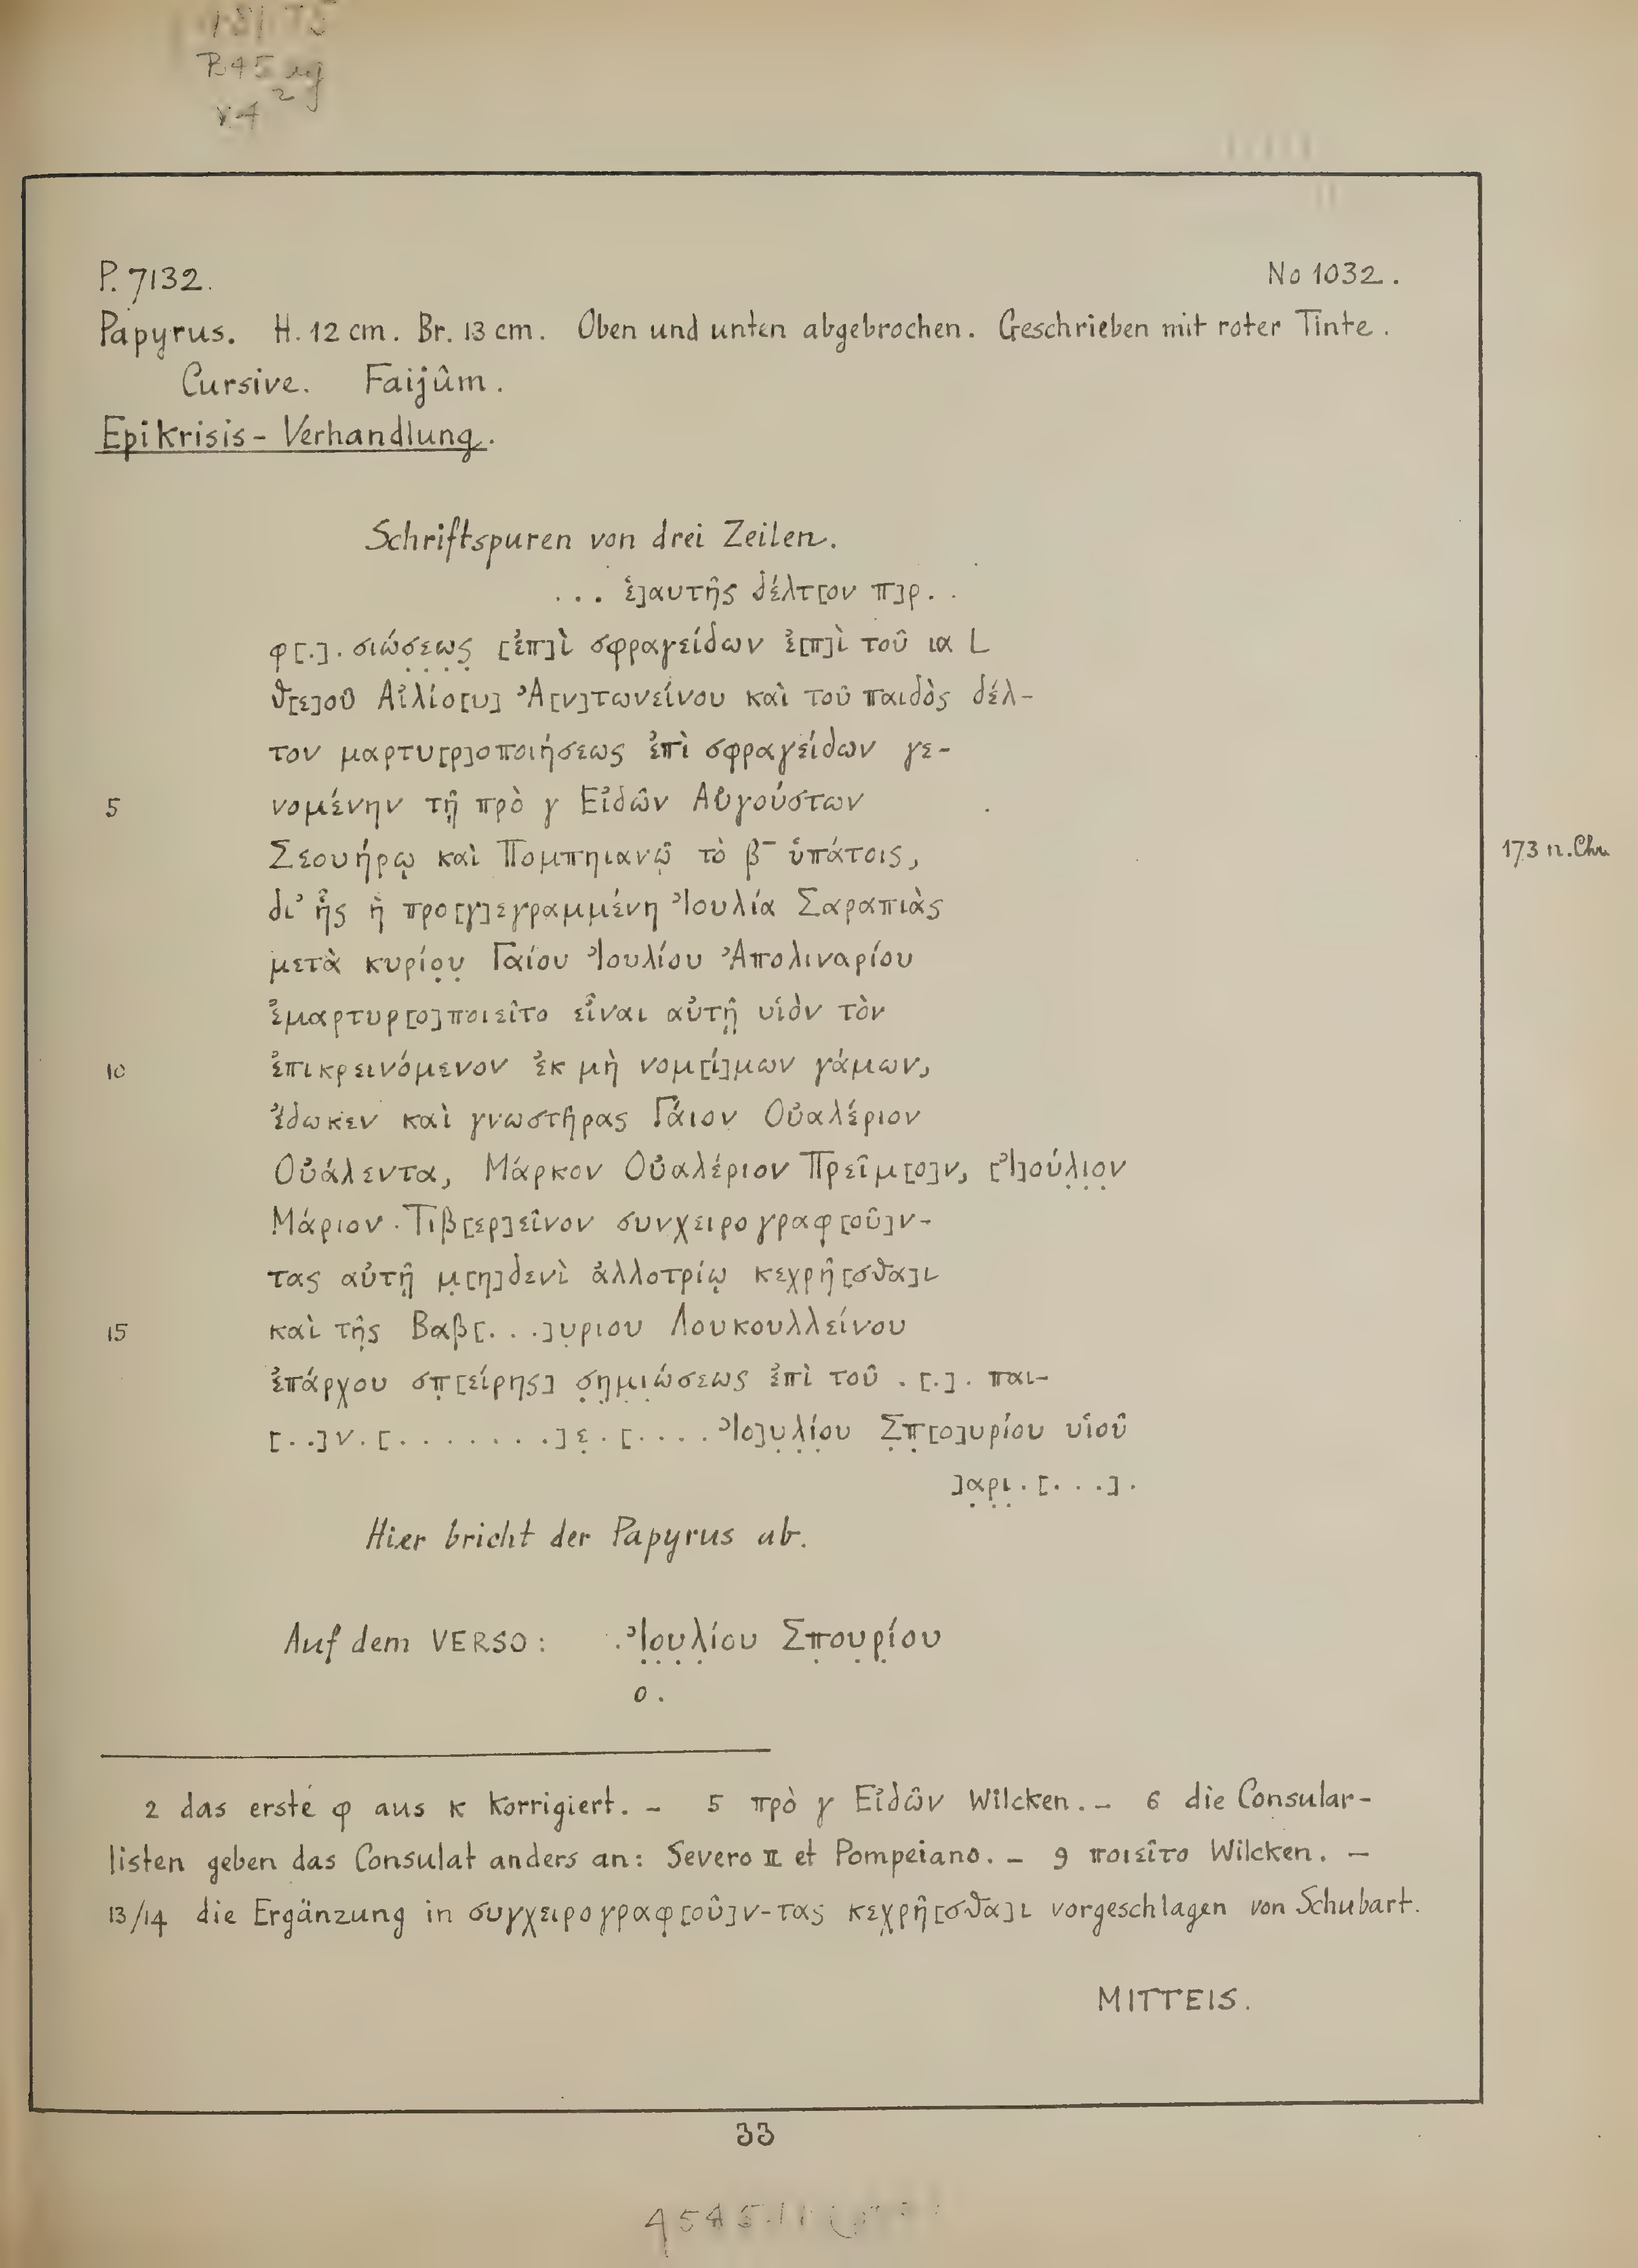 B45ag
v.4 2
P. 7132. No 1032.
Papyrus. H. 12 cm. Br. 13 cm. Oben und unten abgebrochen. Geschrieben mit roter Tinte.
Cursive. Faijûm.
Epikrisis-Verhandlung.
Schriftspuren von drei Zeilen.
... ἑ]αυτῆς δέλτ[ον π]ρ. .
φ[.]. σιώσ̣ε̣ω̣ς̣ [ἐπ]ὶ σφραγείδων ἐ[π]ὶ τοῦ ια L
θ[ε]οῦ Αἰλίο[υ] Ἀ[ν]τωνείνου καὶ τοῦ παιδὸς δέλ-
τον μαρτυ[ρ]οποιήσεως ἐπὶ σφραγείδων γε-
5 νομένην τῇ πρὸ γ Εἰδῶν Αὐγούστων
Σεουήρῳ καὶ Πομπηιανῷ τὸ β‾ ὑπάτοις, 173 n. Chr.
δι' ἧς ἡ προ[γ]εγραμμένη Ἰουλία Σαραπιὰς
μετὰ κυρίο̣υ̣ Γαίου Ἰουλίου Ἀπολιναρίου
ἐμαρτυρ[ο]ποιεῖτο εἶναι αὐτῇ υἱὸν τὸν
10 ἐπικρεινόμενον ἐκ μὴ νομ[ί]μων γάμων,
ἔδωκεν καὶ γνωστῆρας Γάιον Οὐαλέριον
Οὐάλεντα, Μάρκον Οὐαλέριον Πρεῖμ[ο]ν, [Ἰ]ούλ̣ι̣ο̣ν
Μάριον Τιβ[ερ]εῖνον συνχειρογραφ[οῦ]ν-
τας αὐτῇ μ̣[η]δενὶ ἀλλοτρίῳ κεχρῆ[σθα]ι
15 καὶ τῆς Βαβ̣[...]υ̣ριου Λουκουλλείνου
ἐπάρχου σπ̣[είρης] σ̣η̣μ̣ι̣ώσεως ἐπὶ τοῦ . [.]. παι-
[..]ν.[........]ε̣.[....Ἰο]υ̣λ̣ί̣ου Σ̣π̣[ο]υρίου υἱοῦ
]α̣ρ̣ι̣.[...].
Hier bricht der Papyrus ab.
Auf dem VERSO: .Ἰ̣ο̣υ̣λ̣ίου Σπ̣ου̣ρ̣ίου
ο.
2 das erste φ aus κ korrigiert. – 5 πρὸ γ Εἰδῶν Wilcken. – 6 die Consular-
listen geben das Consulat anders an: Severo II et Pompeiano. – 9 ποιεῖτο Wilcken. –
13/14 die Ergänzung in συγχειρογραφ[οῦ]ν-τας κεχρῆ[σθα]ι vorgeschlagen von Schubart.
MITTEIS.
33